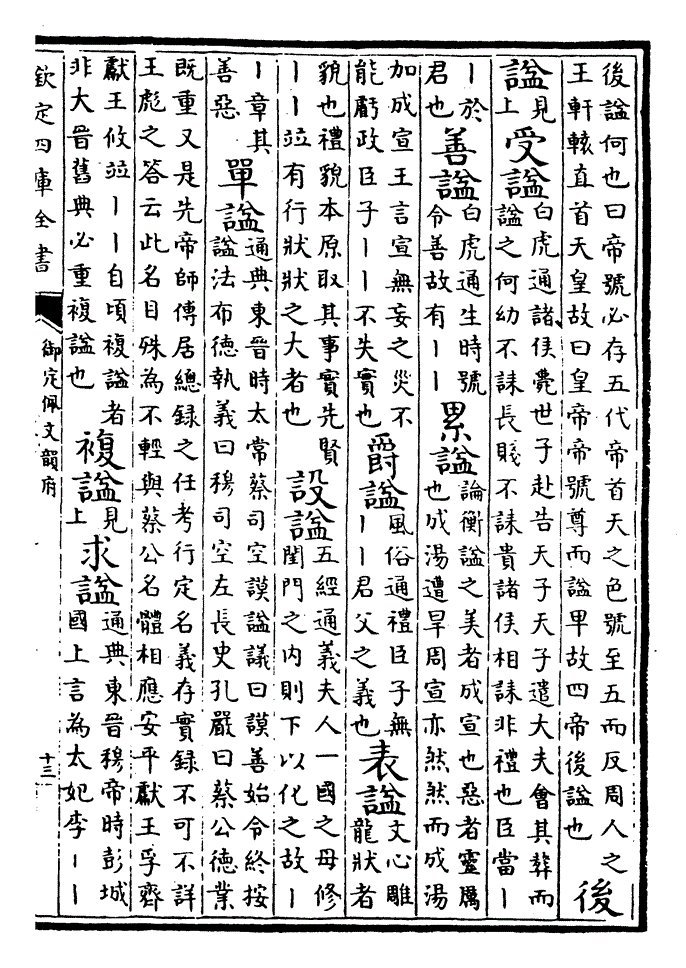 後謚何也曰帝號必存五代帝首天之色號至五而反周人之
王軒轅直首天皇故曰皇帝帝號尊而謚卑故四帝後謚也
後
謚
見上
受謚
白虎通諸侯薨世子赴告天子天子遣大夫會其葬而
謚之何幼不誄長賤不誄貴諸侯相誄非禮也臣當丨
丨於
君也
善謚
白虎通生時號
令善故有丨丨
累謚
論衡謚之美者成宣也惡者靈厲
也成湯遭旱周宣亦然然而成湯
加成宣王言宣無妄之災不
能虧政臣子丨丨不失實也
爵謚
風俗通禮臣子無
丨丨君父之義也
表謚
文心雕
龍狀者
貌也禮貌本原取其事實先賢
丨丨竝有行狀狀之大者也
設謚
五經通義夫人一國之母修
閨門之内則下以化之故丨
丨章其
善惡
單謚
通典東晉時太常蔡司空謨謚議曰謨善始令終按
謚法布德執義曰穆司空左長史孔嚴曰蔡公德業
既重又是先帝師傅居總録之任考行定名義存實録不可不詳
王彪之答云此名目殊為不輕與蔡公名體相應安平獻王孚齊
獻王攸竝丨丨自頃複謚者
非大晉舊典必重複謚也
複謚
見上
求謚
通典東晉穆帝時彭城
國上言為太妃李丨丨
欽定四庫全書
御定佩文韻府
十三